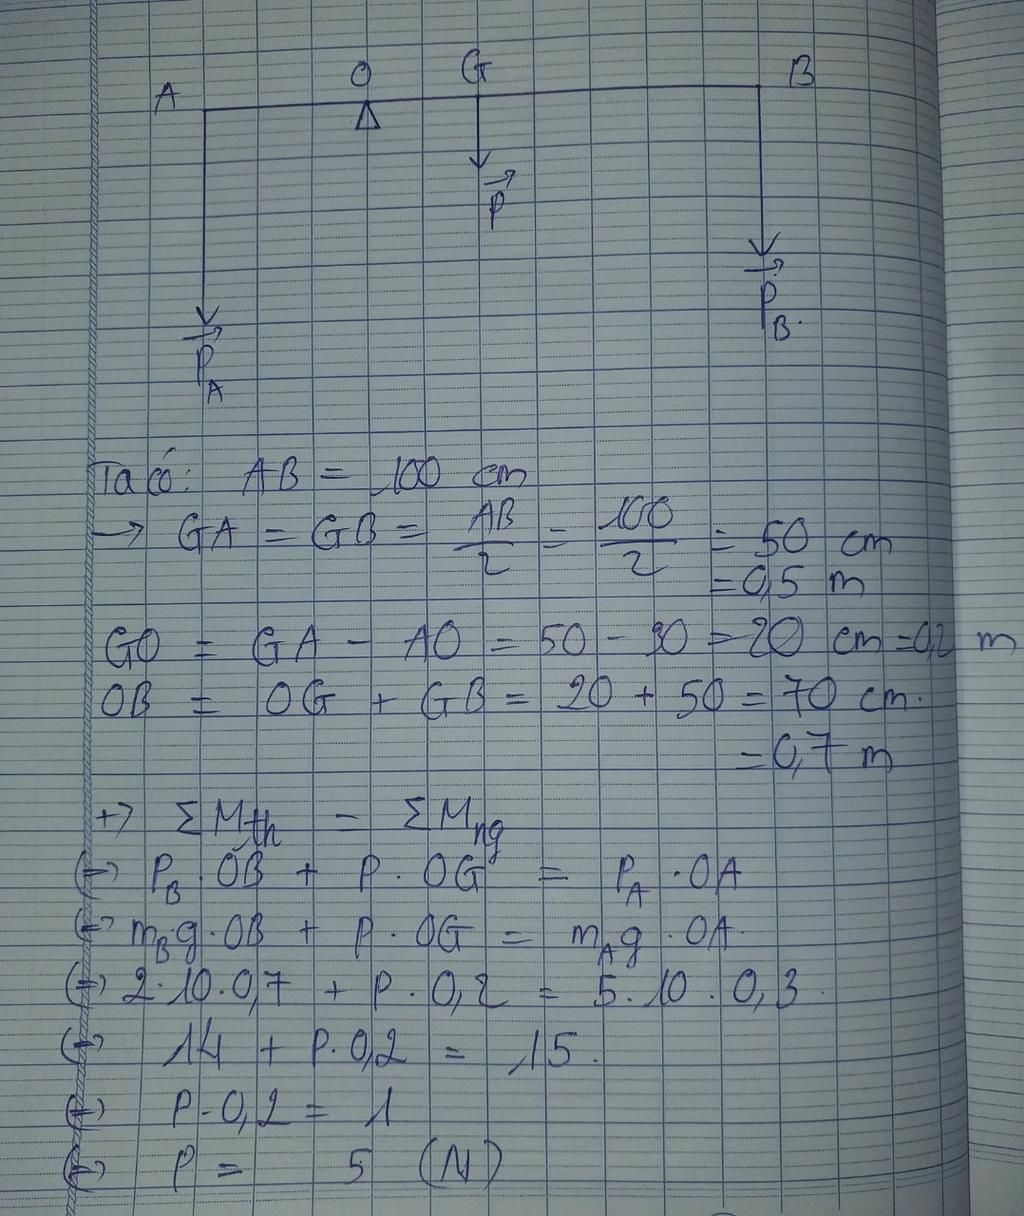 A O G B
P
P_B.
P_A
Ta có: AB = 100 cm
→ GA = GB = AB/2 = 100/2 = 50 cm
= 0,5 m
GO = GA - AO = 50 - 30 = 20 cm = 0,2 m
OB = OG + GB = 20 + 50 = 70 cm.
= 0,7 m
+) ΣM_th = ΣM_ng
(=) P_B . OB + P. OG = P_A . OA
(=) m_B.g.OB + P. OG = m_A g . OA.
(=) 2.10.0,7 + P. 0,2 = 5.10. 0,3.
(=) 14 + P. 0,2 = 15.
(=) P. 0,2 = 1
(=) P = 5 (N)